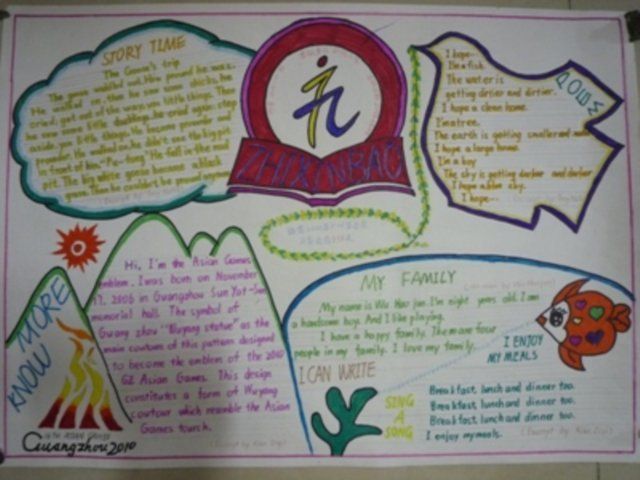 STORY TIME
The Goose's trip
The goose walked and
proud he was.
He walked on, then he saw some chicks, he
cried: get out of the
little things. Then
he saw some little ducklings, he cried again step
aside, you little things. He became prouder and
prouder. He walked on, he didn't see the big pit
in front of him. "Pu-tong" He fell in the mud
pit. The big white goose became a black
goose. Then he couldn't be proud anymore
ZHIXINBAO
POEM
I hope...
I'm a fish.
The water is
getting dirtier and dirtier.
I hope a clean home.
I'm a tree.
The earth is getting smaller and
I hope a large home.
I'm a boy
The sky is getting darker and darker
I hope a blue sky.
I hope...
KNOW MORE
Hi, I'm the Asian Games
emblem. I was born on November
17, 2006 in Guangzhou Sun Yat-Sen
memorial hall. The symbol of
Guang zhou "Wuyang statue" as the
main contour of this pattern designed
to become the emblem of the 2010
GZ Asian Games. This design
constitutes a form of Wuyang
contour which resemble the Asian
Games torch.
16TH ASIAN GAMES
Guangzhou 2010
MY FAMILY
My name is Wu Hao jun. I'm eight years old. I am
a handsome boy. And I like playing.
I have a happy family. There are four
people in my family. I love my family.
I CAN WRITE
I ENJOY
MY MEALS
SING
A
SONG
Breakfast, lunch and dinner too.
Breakfast, lunch and dinner too.
Breakfast, lunch and dinner too.
I enjoy my meals.